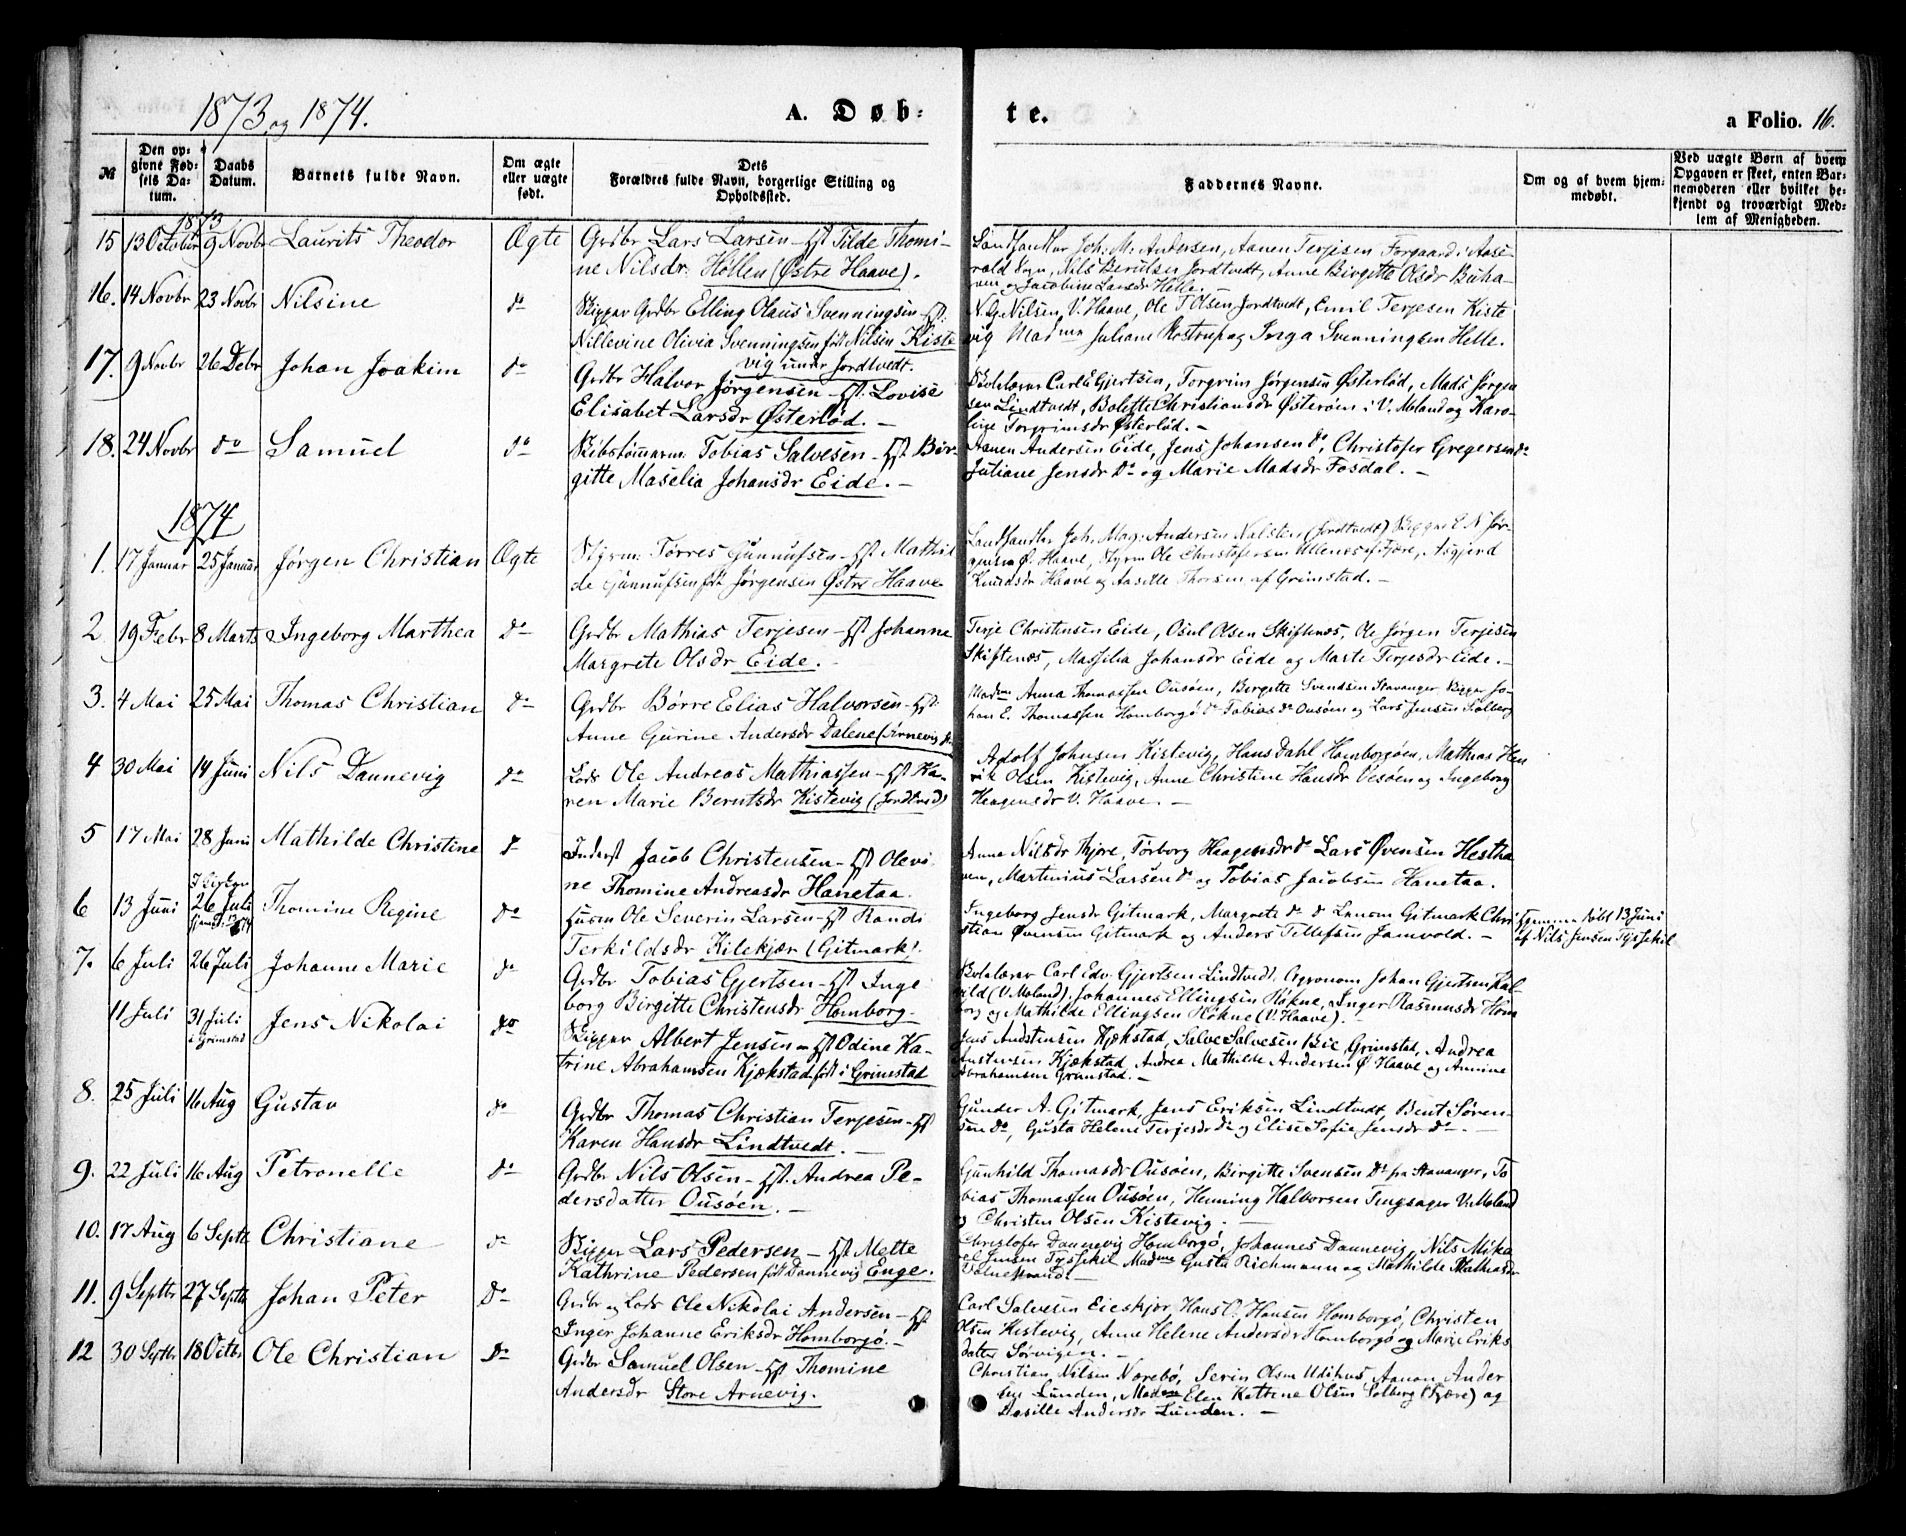 1873 og 1874.
A. Døb-
te.
a Folio. 16.
№
Den opgivne Fødsels Datum.
Daabs Datum.
Barnets fulde Navn.
Om ægte eller uægte født.
Dets Forældres fulde Navn, borgerlige Stilling og Opholdssted.
Faddernes Navne.
Om og af hvem hjemmedøbt.
Ved uægte Børn af hvem Opgaven er skeet, enten Barnemoderen eller hvilket bekjendt og troværdigt Medlem af Menigheden.
1873
15 13 October 9 Novbr Laurits Theodor Ægte Grdbr Lars Larsen – Hst Tilde Thomi-
ne Nilsdr. Hollen (Østre Haave).
Landhandler Joh. M. Andersen, Aanen Terjesen Forgaard i Aase-
rald Sogn, Nils Berulsen Jordtvedt, Anne Birgitte Olsdr Buha-
ven og Jacobine Larsdr Helle.
16. 14 Novbr 23 Novbr Nilsine do Skipper Grdbr Elling Olaus Svenningsen – Hst.
Nillevine Olivia Svenningsen født Nilsen Kiste
vig under Jordtvedt.
N. G. Nilsen, V. Haave, Ole T Olsen Jordtvedt, Emil Terjesen Kiste
vig Madme Juliane Rostrup og Inga Svenningsen Helle.
17. 9 Novbr 26 Debr Johan Joakim do Grdbr Halvor Jørgensen – Hst. Lovise
Elisabet Larsdr Østerlød. –
Skolelærer Carl E Gjertsen, Torgrim Jørgensen Østerlød, Mads Jørgen
sen Lindtvedt, Bolette Christiansdr Østerøen i V. Moland og Karo-
line Torgrimsdr Østerlød. –
18. 24 Novbr do Samuel do Skibstømmerm: Tobias Salvesen – Hst Bir-
gitte Maselia Johansdr Eide. –
Aanen Andersen Eide, Jens Johansen do, Christofer Gregersen do
Juliane Jensdr do og Marie Madsdr Fosdal. –
1874
1. 17 Januar 25 Januar Jørgen Christian Ægte Styrm: Torres Gunnufsen – Hst Mathil
de Gunnufsen født Jørgensen Østre Haave
Landhandler Joh. Mag. Andersen (Jordtvedt) Skipper E N Jør-
gensen Ø. Haave, Styrm Ole Christofersen Ullenes af Fjære, Asgjerd
Knudsdr Haave og Aasille Thorsen af Grimstad. –
2 19 Febr 8 Marts Ingeborg Marthea do Grdbr Mathias Terjesen – Hst Johanne
Margrete Olsdr Eide. –
Terje Christensen Eide, Osul Olsen Skiftenes, Ole Jørgen Terjesen
Skiftenes, Massilia Johansdr Eide og Marte Terjesdr Eide. –
3. 4 Mai 25 Mai Thomas Christian do Grdbr Børre Elias Halvorsen – Hst.
Anne Gurine Andersdr Dalene
Madme Anna Thomassen Ousøen, Birgitte Svendsen Stavanger, Skipper Jo-
han E. Thomassen Homborgø do Tobias do Ousøen og Lars Jensen Solberg
4 30 Mai 14 Juni Nils Dannevig do Lods Ole Andreas Mathiassen – Hst Ka-
ren Marie Berntsdr Kistevig (Jordtvedt)
Adolf Johnsen Kistevig, Hans Dahl Homborgøen, Mathias Hen
rik Olsen Kistevig, Anne Christine Hansdr Vesøen og Ingeborg
Haagensdr V. Haave. –
5 17 Mai 28 Juni Mathilde Christine do Inderst Jacob Christensen – Hst Olevi
ne Thomine Andreasdr Hanetaa.
Anne Nilsdr Kjøre, Torborg Haagensdr do Lars Øvensen Hestha
ven, Martinius Larsen do og Tobias Jacobsen Hanetaa.
6 13 Juni I Kirken 26 Juli Thomine Regine do Husm Ole Severin Larsen – Hst Randi
Terkildsdr Kilekjær (Gitmark).
Ingeborg Jensdr Gitmark, Margrete do do Gitmark Chri
stian Øvensen Gitmark og Anders Tellefsen Jamvold. –
Hjemmedøbt 13 Juni
af Nils Jensen Tysskil
7. 6 Juli 26 Juli Johanne Marie do Grdbr Tobias Gjertsen – Hst Inge
borg Birgitte Christensdr Homborg. –
Skolelærer Carl Edv. Gjertsen Lindtvedt, Agronom Johan Gjertsen Kal-
vild (V. Moland), Johannes Ellingsen Høkne, Inger Rasmusdr Hom
borg og Mathilde Ellingsen Høkne (V. Haave). –
11 Juli 31 Juli i Grimstad Jens Nikolai do Skipper Albert Jensen – Hst Odine Ka-
trine Abrahamsen Kjækstad født i Grimstad
Jens Andstensen Kjækstad, Salve Salvesen Bie, Grimstad, Andrea
Austensen Kjækstad, Andrea Mathilde Andersen Ø Haave og Annine
Abrahamsen Grimstad. –
8. 25 Juli 16 Aug Gustav do Grdbr Thomas Christian Terjesen – Hst
Karen Hansdr Lindtvedt. –
Gunder A. Gitmark, Jens Eriksen Lindtvedt, Bent Søren-
sen do, Gusta Helene Terjesdr do og Elise Sofie Jensdr do. –
9. 22 Juli 16 Aug Petronelle do Grdbr Nils Olsen – Hst. Andrea Pe-
dersdatter Ousøen. –
Gunhild Thomasdr Ousøen, Birgitte Svensen do fra Stavanger, To
bias Thomassen Ousøen, Henning Halvorsen Tingsager V. Moland
og Christen Olsen Kistevig. –
10. 17 Aug 6 Septbr Christiane do Skipper Lars Pedersen – Hst Mette
Kathrine Pedersen født Dannevig Enge.
Christofer Dannevig Homborgø, Johannes Dannevig, Nils Mika
el Jensen Tysskil, Madme Gusta Richmann og Mathilde Mathiasdr
11. 9 Septbr 27 Septbr Johan Peter do Grdbr og Lods Ole Nikolai Andersen – Hst
Inger Johanne Eriksdr Homborgø. –
Carl Salvesen Eieskjør, Hans O. Hansen Homborgø, Christen
Olsen Kistevig, Anne Helene Andersdr Homborgø og Marie Eriks
datter Sørvigen. –
12 30 Septbr 18 Octbr Ole Christian do Grdbr Samuel Olsen – Hst Thomine
Andersdr Store Arnevig.
Christian Nilsen Norebø, Serin Olsen Udihus, Aanon Ander
sen Lunden, Madme Elen Katrine Olsen Solberg (Fjære) og
Aasille Andersdr Lunden. –